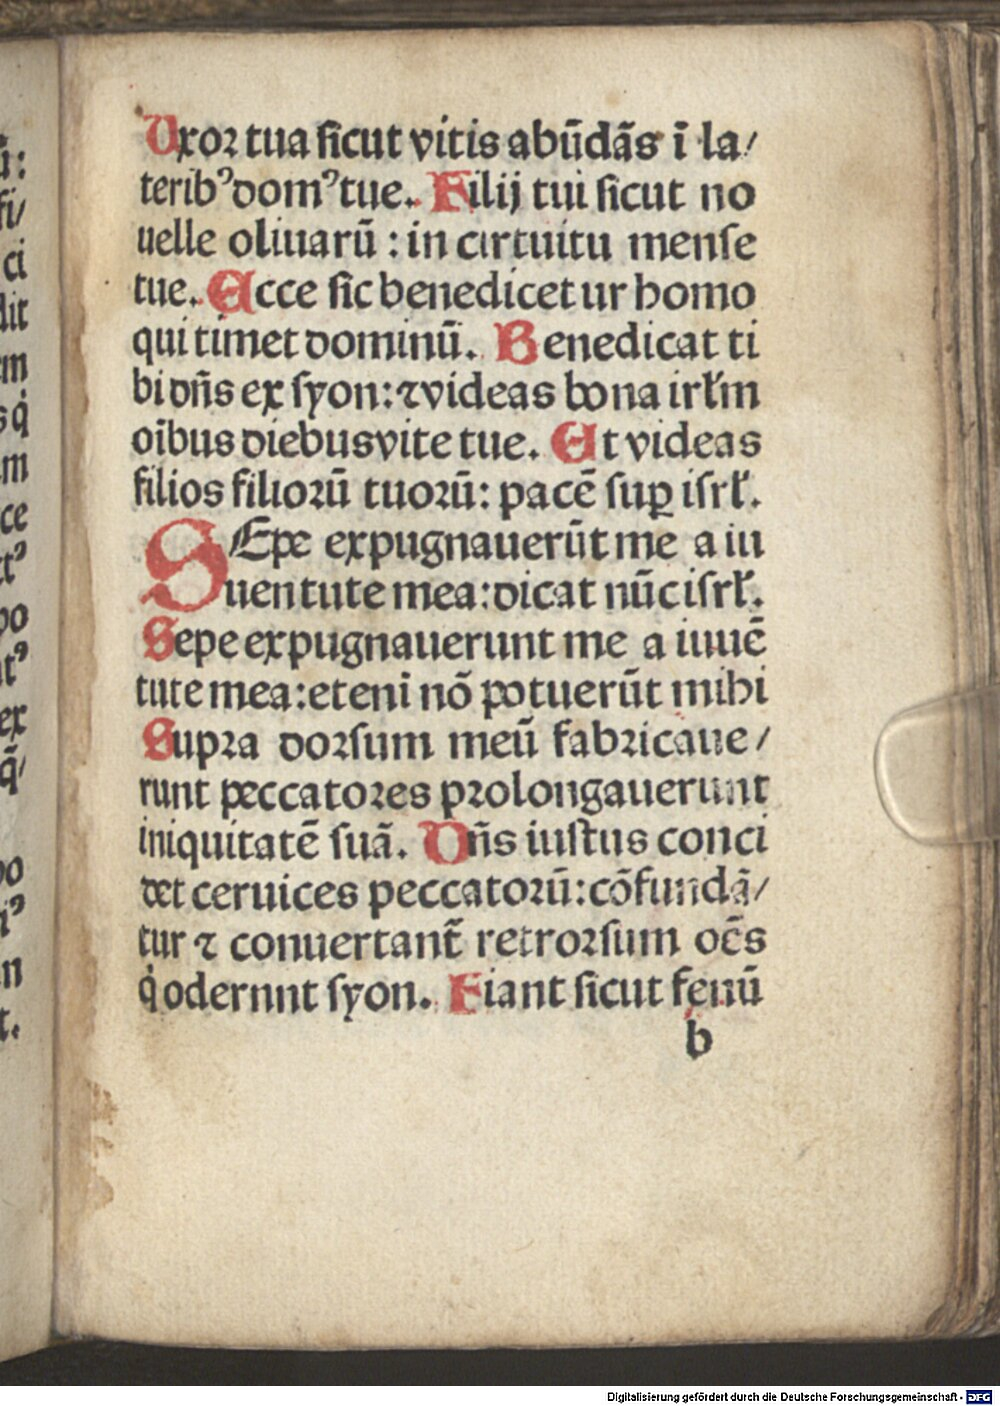 Uxor tua sicut vitis abūdās ī la/
teribꝰ domꝰ tue. Filij tui sicut no
uelle oliuarū : in circuitu mense
tue. Ecce sic benedicetur homo
qui timet dominū. Benedicat ti
bi dn̄s ex syon: ⁊ videas bona irłm
oı̄bus diebus vite tue. Et videas
filios filiorū tuorū: pacē suꝑ isrł.
SEpe expugnauerūt me a iu
uentute mea: dicat nūc isrł.
Sepe expugnauerunt me a iuuē
tute mea: eteni nō potuerūt mihi
Supra dorsum meū fabricaue/
runt peccatores prolongauerunt
iniquitatē suā. Dn̄s iustus conci
det ceruices peccatorū: cōfundā/
tur ⁊ conuertant̄ retrorsum oēs
q̇ odernnt syon. Fiant sicut fenū
b
Digitalisierung gefördert durch die Deutsche Forschungsgemeinschaft - DFG